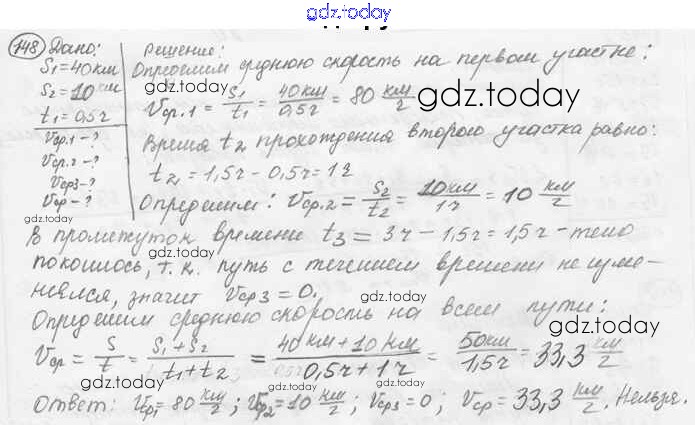 gdz.today
148 Дано:
S₁=40км
S₂=10км
t₁=0,5ч
Vср.1-?
Vср.2-?
Vср3-?
Vср-?
gdz.today
Решение:
Определим среднюю скорость на первом участке:
gdz.today
Vср.1 = S₁/t₁ = 40км/0,5ч = 80 км/ч
gdz.today
Время t₂ прохождения второго участка равно:
t₂ = 1,5ч - 0,5ч = 1ч
gdz.today
Определим: Vср.2 = S₂/t₂ = 10км/1ч = 10 км/ч
В промежуток времени t₃ = 3ч - 1,5ч = 1,5ч - тело
gdz.today
покоилось, т.к. путь с течением времени не изме-
нялся, значит Vср3 = 0.
gdz.today
gdz.today
Определим среднюю скорость на всем пути:
gdz.today
Vср = S/t = S₁+S₂/t₁+t₂ = 40км+10км/0,5ч+1ч = 50км/1,5ч = 33,3 км/ч
gdz.today
Ответ: Vср1 = 80 км/ч; Vср2 = 10 км/ч; Vср3 = 0; Vср = 33,3 км/ч. Нельзя.
gdz.today
gdz.today